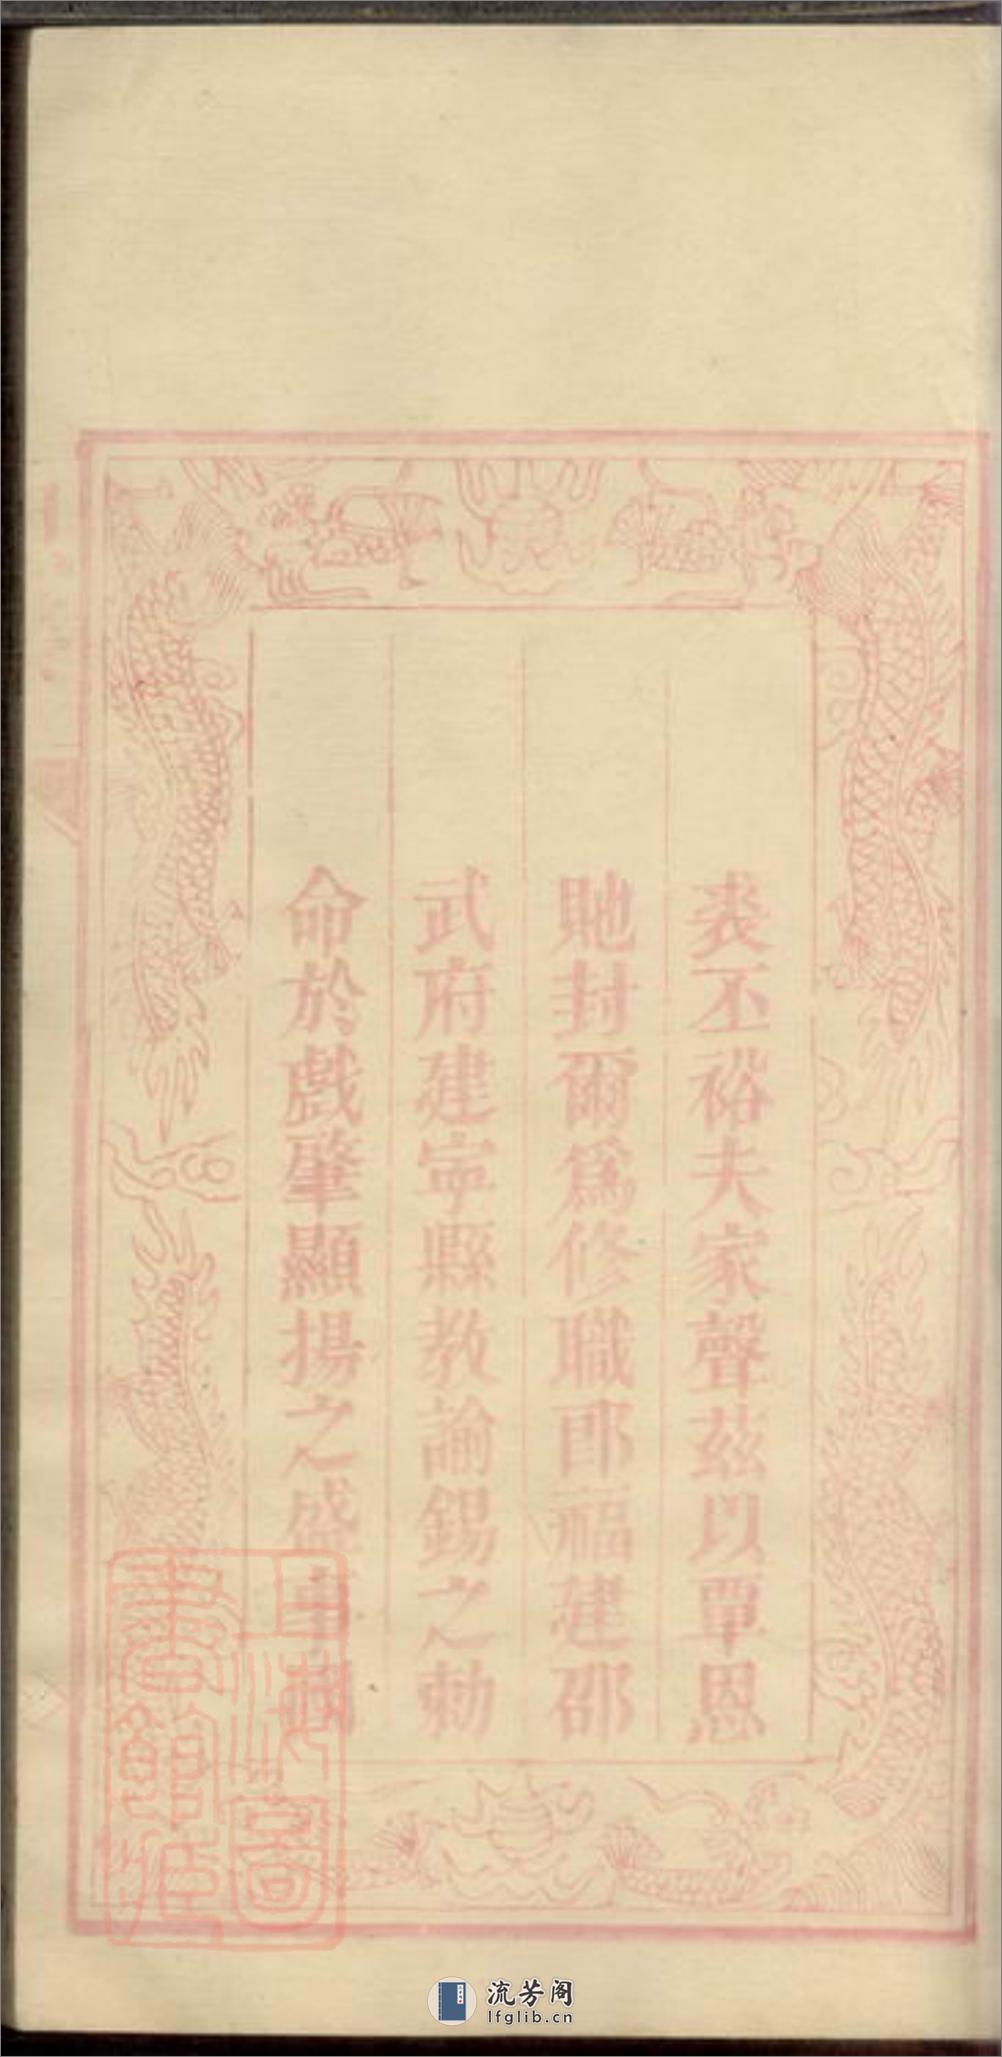 裘丕裕夫家聲茲以覃恩
貤封爾爲修職郎福建邵
武府建寧縣教諭錫之勅
命於戲肇顯揚之盛事國
上海圖
書館藏
流芳阁
lfglib.cn